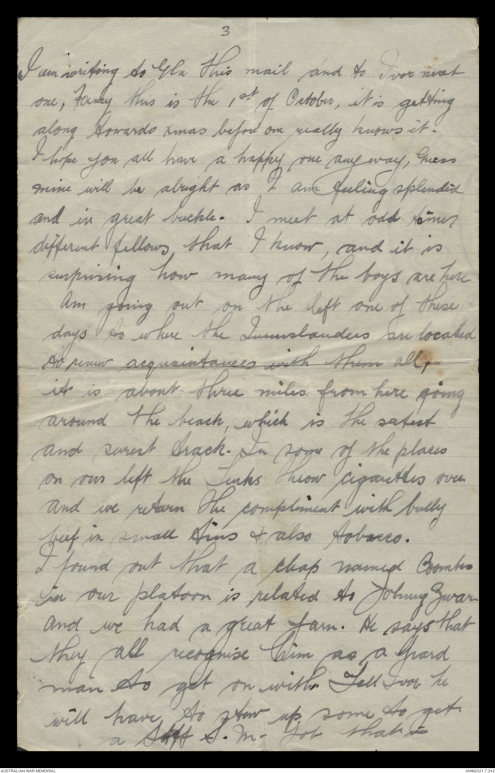 3
I am writing to Gla this mail and to Ivor next
one, Fancy this is the 1st of October, it is getting
along towards xmas before one really knows it.
I hope you all have a happy one any way, Guess
mine will be alright as I am feeling splendid
and in great buckle. I meet at odd times
different fellows that I know, and it is
surprising how many of the boys are here
Am going out on the left one of these
days to where the Queenslanders are located
to renew acquaintances with them all,
it is about three miles from here going
around the beach, which is the safest
and surest track. In some of the places
on our left the Turks throw cigarettes over
and we return the compliment with bully
beef in small tins & also tobacco.
I found out that a chap named Coombes
in our platoon is related to Johnny Zwar
and we had a great yarn. He says that
they all recognise him as a hard
man to get on with. Tell Ivor he
will have to stew up some to get
a Staff S. M. Job that
AUSTRALIAN WAR MEMORIAL
AWM2021.7.217